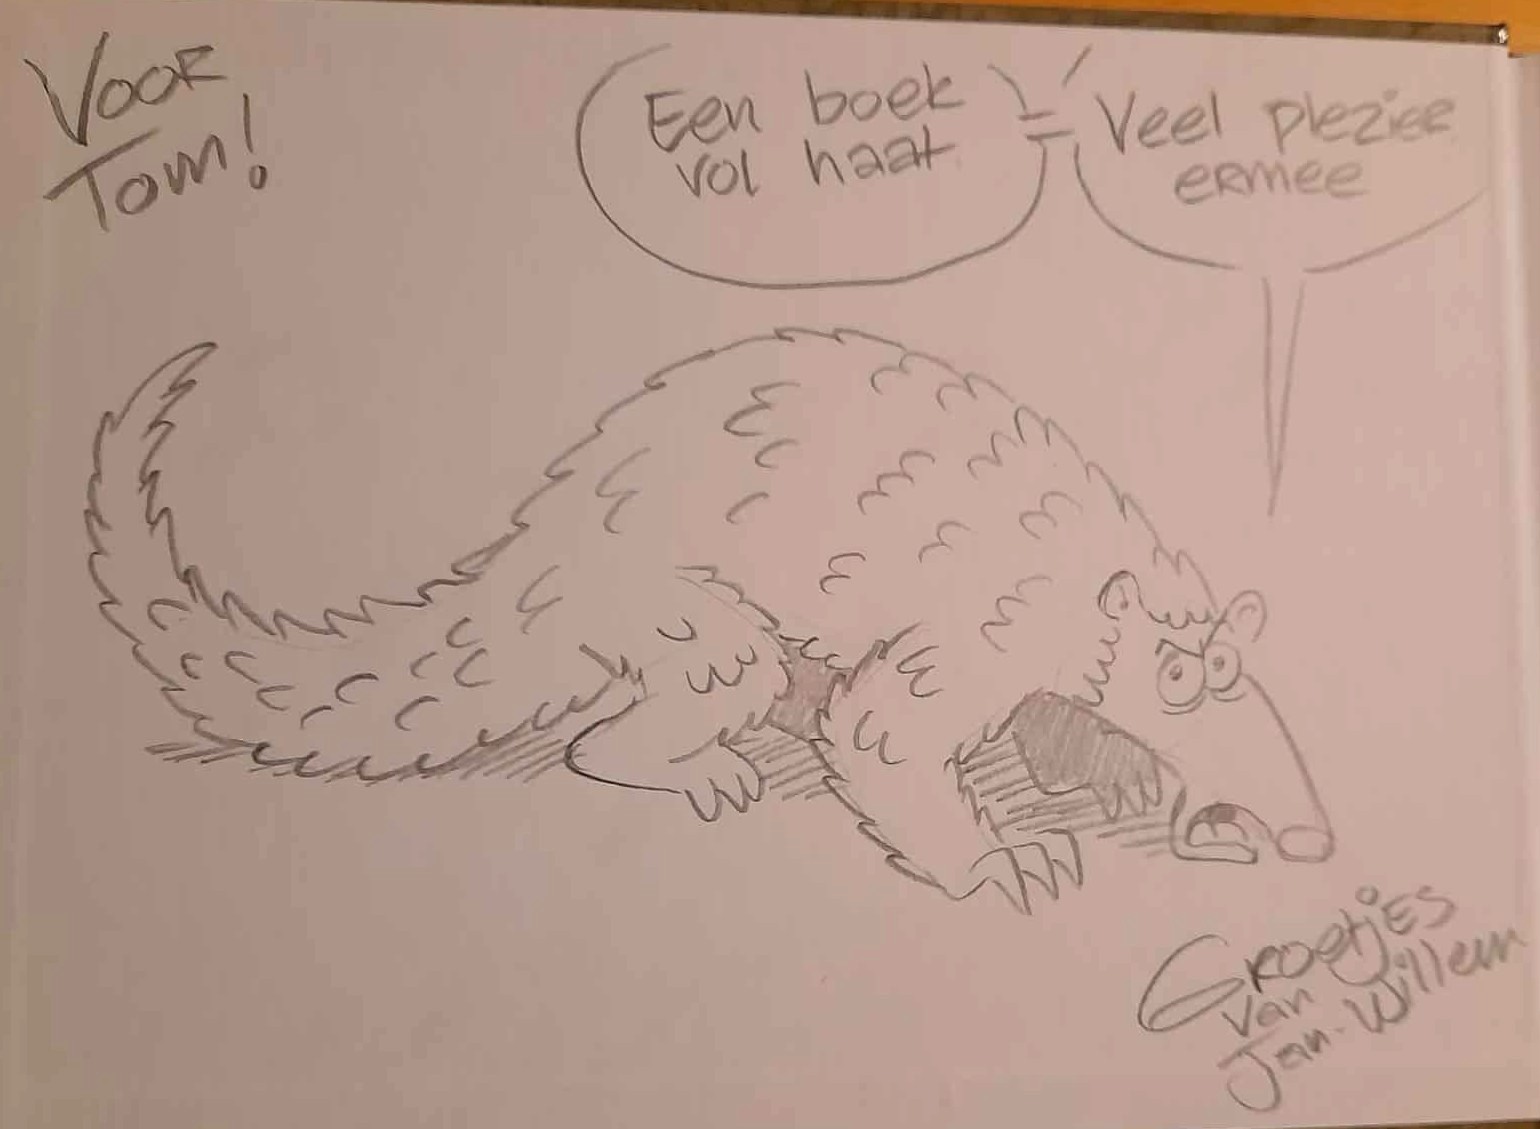 Voor
Tom!
Een boek
vol haat
Veel plezier
ermee
Groetjes
van
Jan-Willem